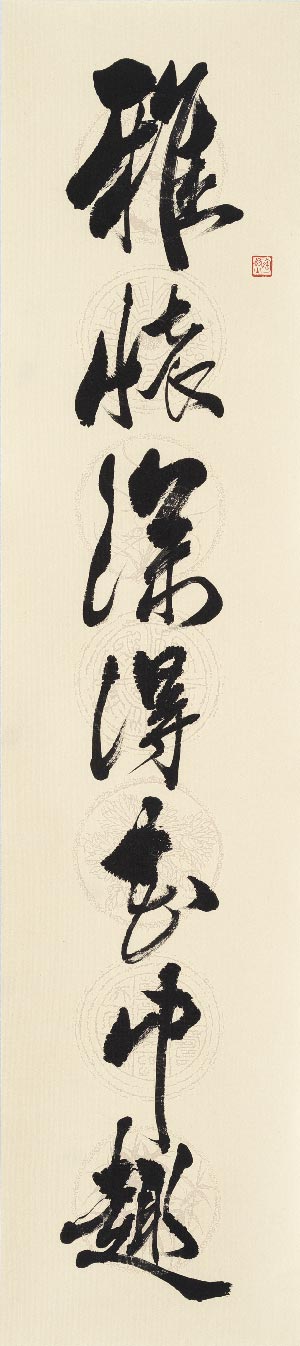 雅懷深得其中趣